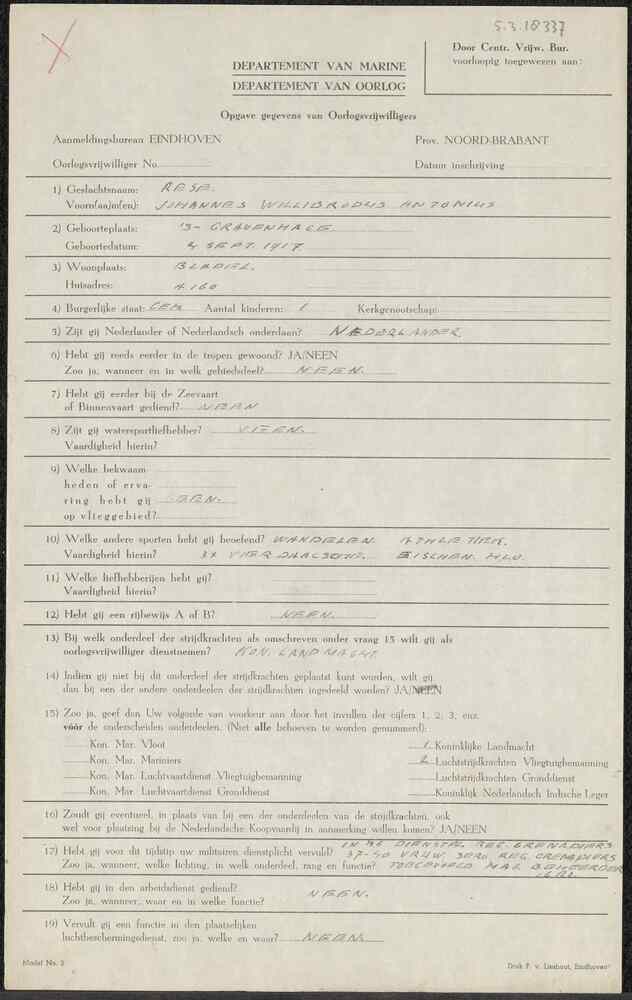 5.3.18337
DEPARTEMENT VAN MARINE
DEPARTEMENT VAN OORLOG
Door Centr. Vrijw. Bur.
voorloopig toegewezen aan:
Opgave gegevens van Oorlogsvrijwilligers
Aanmeldingsbureau EINDHOVEN Prov. NOORD-BRABANT
Oorlogsvrijwilliger No. Datum inschrijving
1) Geslachtsnaam: RESE.
Voorn(aa)m(en): JOHANNES WILLIBRODUS ANTONIUS
2) Geboorteplaats: 'S-GRAVENHAGE
Geboortedatum: 4 SEPT. 1917
3) Woonplaats: BLADEL.
Huisadres: A.160
4) Burgerlijke staat: GEH. Aantal kinderen: 1 Kerkgenootschap:
5) Zijt gij Nederlander of Nederlandsch onderdaan? NEDERLANDER
6) Hebt gij reeds eerder in de tropen gewoond? JA/NEEN
Zoo ja, wanneer en in welk gebiedsdeel? NEEN.
7) Hebt gij eerder bij de Zeevaart
of Binnenvaart gediend? NEEN
8) Zijt gij watersportliefhebber?
Vaardigheid hierin?
9) Welke bekwaam-
heden of erva-
ring hebt gij GEEN.
op vlieggebied?
10) Welke andere sporten hebt gij beoefend? WANDELEN ATHLETIEK.
Vaardigheid hierin? 3X VIERDAAGSCHE. EISCHEN.
11) Welke liefhebberijen hebt gij?
Vaardigheid hierin?
12) Hebt gij een rijbewijs A of B? NEEN.
13) Bij welk onderdeel der strijdkrachten als omschreven onder vraag 15 wilt gij als
oorlogsvrijwilliger dienstnemen? KON. LANDMACHT.
14) Indien gij niet bij dit onderdeel der strijdkrachten geplaatst kunt worden, wilt gij
dan bij een der andere onderdeelen der strijdkrachten ingedeeld worden? JA/NEEN
15) Zoo ja, geef dan Uw volgorde van voorkeur aan door het invullen der cijfers 1, 2, 3, enz.
vóór de onderscheiden onderdeelen. (Niet alle behoeven te worden genummerd):
Kon. Mar. Vloot 1 Koninklijke Landmacht
Kon. Mar. Mariniers 2 Luchtstrijdkrachten Vliegtuigbemanning
Kon. Mar. Luchtvaartdienst Vliegtuigbemanning Luchtstrijdkrachten Gronddienst
Kon. Mar. Luchtvaartdienst Gronddienst Koninklijk Nederlandsch Indische Leger
16) Zoudt gij eventueel, in plaats van bij een der onderdeelen van de strijdkrachten, ook
wel voor plaatsing bij de Nederlandsche Koopvaardij in aanmerking willen komen? JA/NEEN
IN 36 DIENSTPL. REG. GRENADIERS
17) Hebt gij vóór dit tijdstip uw militairen dienstplicht vervuld? 37-40 VRIJW. SERG. REG. GRENADIERS
Zoo ja, wanneer, welke lichting, in welk onderdeel, rang en functie? TOEGEVOEGD MAG. BEHEERDER
18) Hebt gij in den arbeidsdienst gediend?
Zoo ja, wanneer, waar en in welke functie? NEEN.
19) Vervult gij een functie in den plaatselijken
luchtbeschermingsdienst, zoo ja, welke en waar? NEEN.
Model No. 2 Druk F. v. Lieshout, Eindhoven